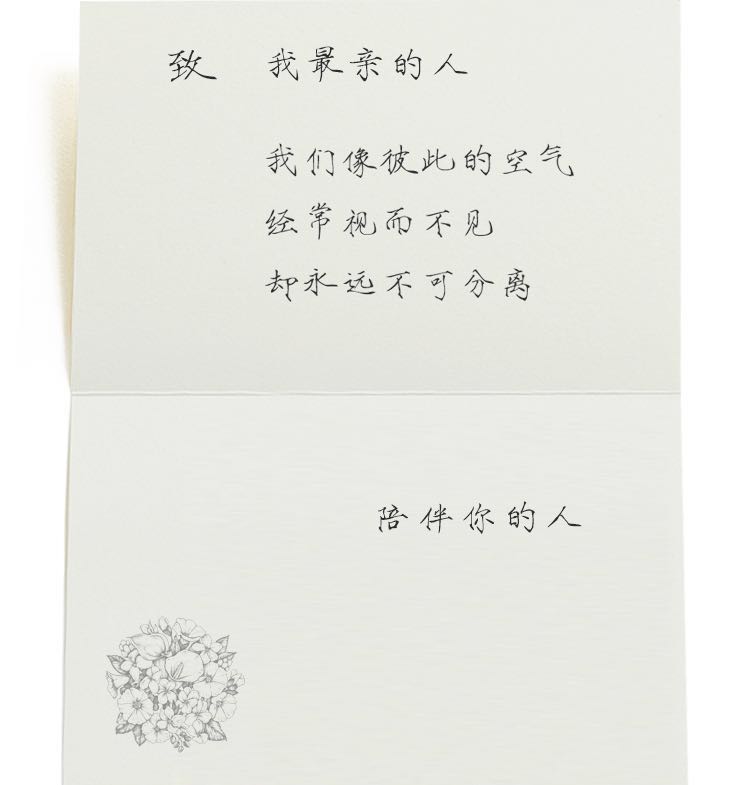 致 我最亲的人
我们像彼此的空气
经常视而不见
却永远不可分离
陪伴你的人